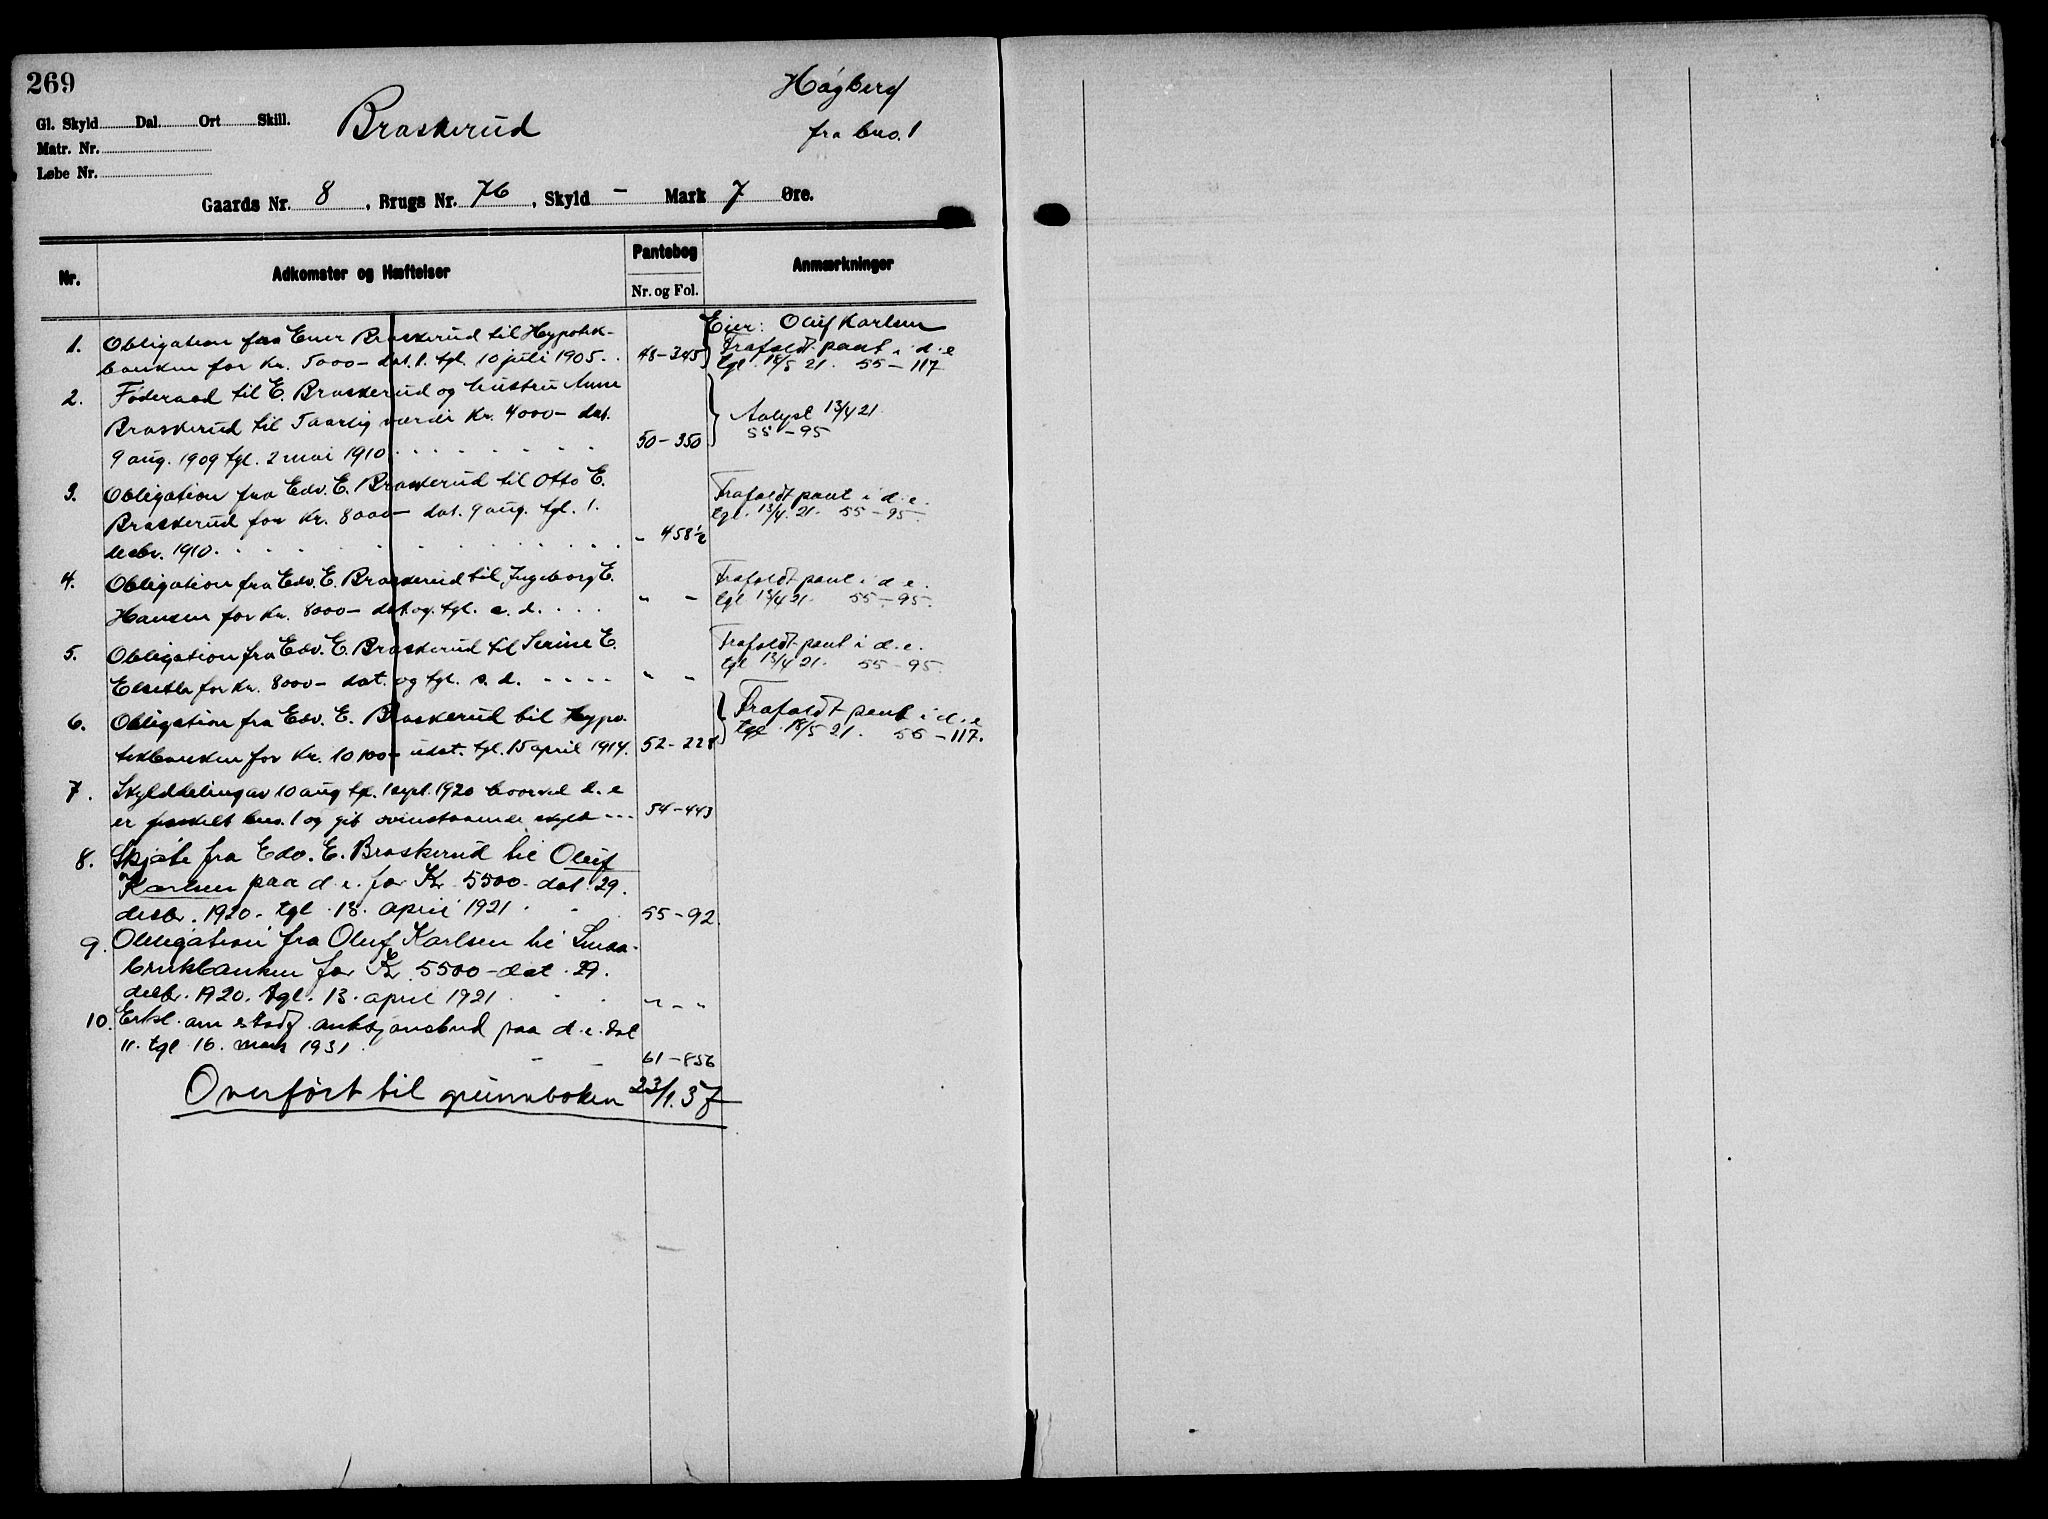 269
Gl. Skyld Dal. Ort Skill.
Matr. Nr.
Løbe Nr.
Braskerud
Høgberg
fra bno. 1
Gaards Nr. 8, Brugs Nr. 76, Skyld - Mark 7 Øre.
Nr. Adkomster og Hæftelser Pantebog Anmærkninger
Nr. og Fol.
Eier: Oluf Karlsen
1. Obligation fra Ener Braskerud til Hypotek-
banken for Kr. 5000- dat. 1. tgl. 10 juli 1905. 48-345 Frafaldt pant i d. e
tgl. 18/5 21. 55-117
2. Føderaad til E. Braskerud og hustru Anne
Braskerud til 5aarlig værdi Kr. 4000- dat.
9 aug. 1909 tgl. 2 mai 1910 50-350 Avlyst 13/4 21.
55-95
3. Obligation fra Edv. E. Braskerud til Otto E.
Braskerud for Kr. 8000- dat. 9 aug. tgl. 1.
desbr. 1910. " 458½ Frafaldt pant i d. e.
tgl. 13/4. 21. 55-95.
4. Obligation fra Edv. E. Braskerud til Ingeborg E.
Hansen for Kr. 8000- dat. og tgl. s. d. " - Frafaldt pant i d. e.
tgl 13/4 21. 55-95.
5. Obligation fra Edv. E. Braskerud til Serine E.
for Kr. 8000- dat. og tgl. s. d. " " Frafaldt pant i d. e.
tgl 13/4 21. 55-95
6. Obligation fra Edv. E. Braskerud til Hypo-
tekbanken for Kr. 10100- udst. tgl. 15 april 1914. 52-228 Frafaldt pant i d. e
tgl 18/5 21. 55-117.
7. Skylddeling av 10 aug tgl. 1 sept. 1920 hvorved d. e
er fraskilt bno. 1 og git ovenstaaende skyld 54-443
8. Skjøte fra Edv. E. Braskerud til Oluf
Karlsen paa d. e. for Kr 5500- dat. 29.
desbr. 1920. tgl. 13. april 1921 55-92
9. Obligation fra Oluf Karlsen til Smaa-
brukbanken for Kr 5500- dat. 29.
desbr. 1920. tgl. 13. april 1921 " - "
10. Erkl. om auksjonsbud paa d. e. dat
11. tgl 16. mars 1931. 61-856
Overført til grunnboken 23/1. 37